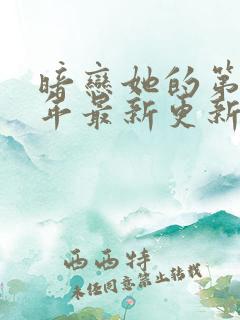 暗戀她的第
年最新更新
西西特
未经同意禁止转载